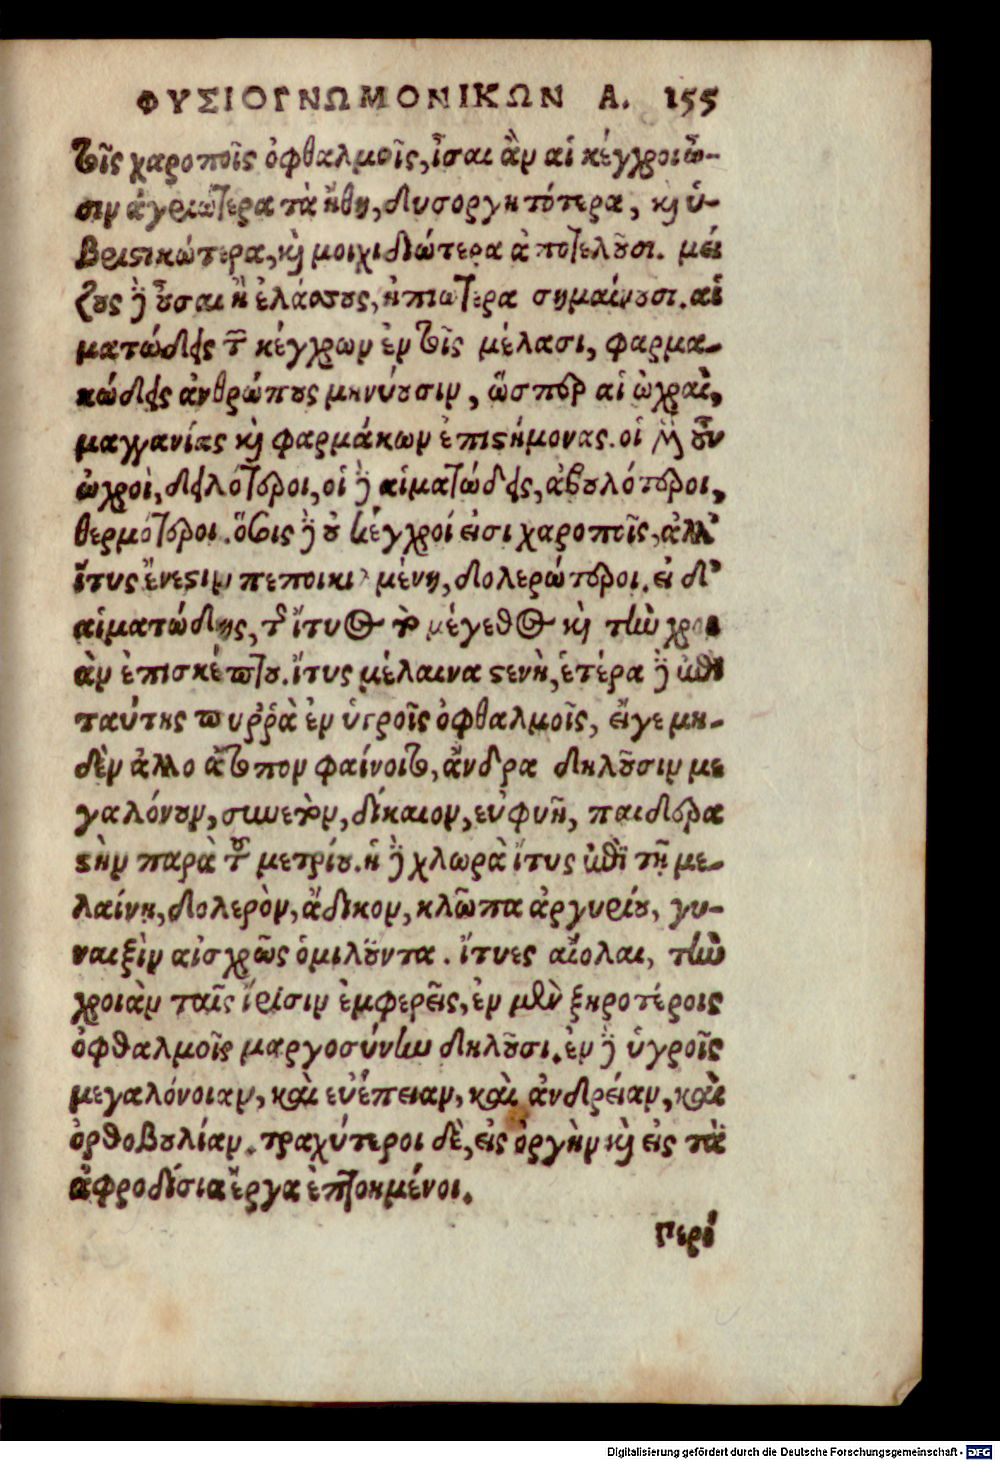 ΦΥΣΙΟΓΝΩΜΟΝΙΚΩΝ Α. 155
τοῖς χαροποῖς ὀφθαλμοῖς, ἶσαι ἂν αἱ κέγχροι ὦ-
σιν ἀγριώτερα τὰ ἤθη, δυσοργητότερα, κὶ ὑ-
βριστικώτερα, κὶ μοιχιδιώτερα ἀποτελοῦσι. μεί
ζους ἢ οὖσαι ἢ ἐλάσσους, ἠπιώτερα σημαίνουσι. αἱ
ματώδεις τῶν κέγχρων ἐν τοῖς μέλασι, φαρμα-
κώδεις ἀνθρώπους μηνύουσιν, ὥσπερ αἱ ὠχραὶ,
μαγγανίας κὶ φαρμάκων ἐπιστήμονας. οἱ μὲν οὖν
ὠχροὶ, δειλότεροι, οἱ δὲ αἱματώδεις, ἀβουλότεροι,
θερμότεροι. ὅσοις δὲ οὐ κέγχροί εἰσι χαροποῖς, ἀλλ'
ἴτυς ἔνεστιν πεποικιλμένη, δολερώτεροι. εἰ δ'
αἱματώδης, τῆς ἴτυος τὸ μέγεθος κὶ τὴν χροι
ὰν ἐπισκέπτου. ἴτυς μέλαινα στενὴ, ἑτέρα δὲ μετὰ
ταύτης πυῤῥὰ ἐν ὑγροῖς ὀφθαλμοῖς, εἴγε μη-
δὲν ἄλλο ἄτοπον φαίνοιτο, ἄνδρα δηλοῦσιν με
γαλόνουν, συνετὸν, δίκαιον, εὐφυῆ, παιδερα
στὴν παρὰ τοῦ μετρίου. ἡ δὲ χλωρὰ ἴτυς μετὰ τῆ με-
λαίνη, δολερὸν, ἄδικον, κλῶπα ἀργυρίου, γυ-
ναιξὶν αἰσχρῶς ὁμιλοῦντα. ἴτυες αἴολαι, τὴν
χροιὰν ταῖς ἴρισιν ἐμφερεῖς, ἐν μὲν ξηροτέροις
ὀφθαλμοῖς μαργοσύνην δηλοῦσι. ἐν δὲ ὑγροῖς
μεγαλόνοιαν, καὶ εὐέπειαν, καὶ ἀνδρείαν, καὶ
ὀρθοβουλίαν. τραχύτεροι δὲ, εἰς ὀργὴν κὶ εἰς τὰ
ἀφροδίσια ἔργα ἐπτοημένοι.
Περὶ
Digitalisierung gefördert durch die Deutsche Forschungsgemeinschaft - DFG